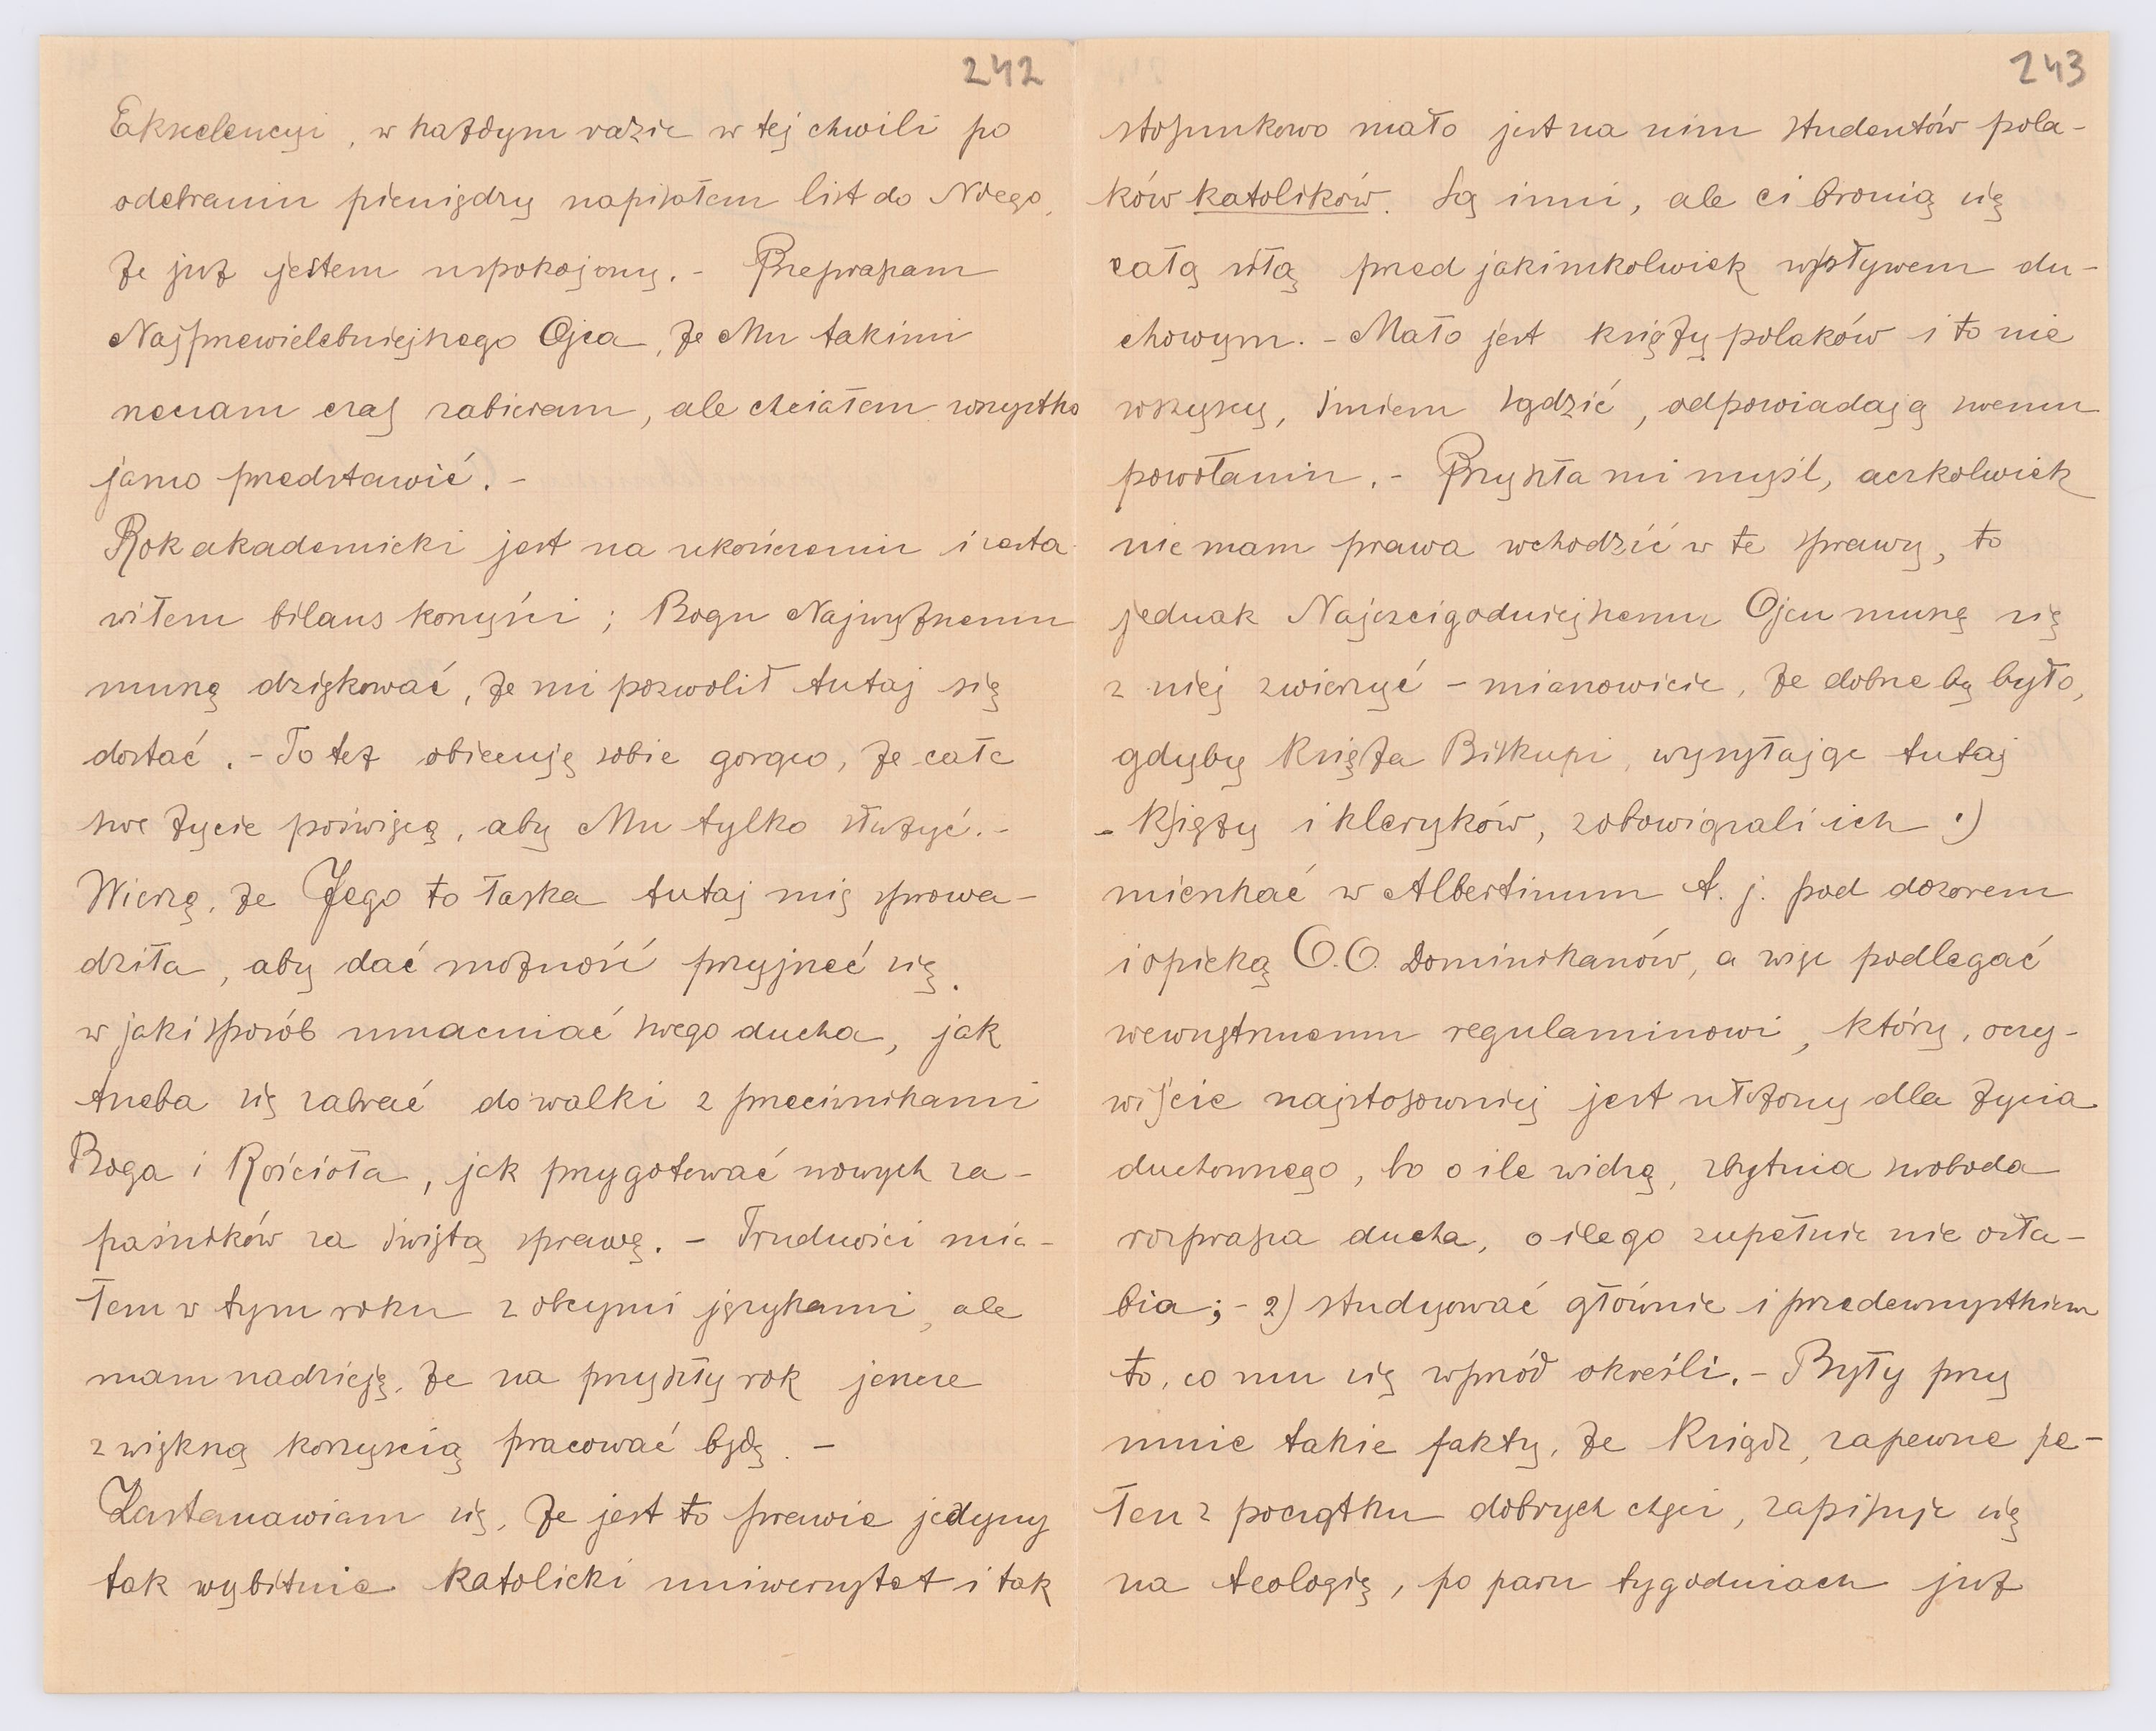 242
Ekscelencyi, w każdym razie w tej chwili po
odebraniu pieniędzy napisałem list do Niego,
że już jestem uspokojony. - Przepraszam
Najprzewielebniejszego Ojca, że Mu takimi
rzeczam czas zabieram, ale chciałem wszystko
jasno przedstawić. -
Rok akademicki jest na ukończeniu i zesta-
wiłem bilans korzyści; Bogu Najwyższemu
muszę dziękować, że mi pozwolił tutaj się
dostać. - To też obiecuję sobie gorąco, że całe
swe życie poświęcę, aby Mu tylko służyć. -
Wierzę, że Jego to łaska tutaj mię sprowa-
dziła, aby dać możność przyjrzeć się,
w jaki sposób umacniać swego ducha, jak
trzeba się zabrać do walki z przeciwnikami
Boga i Kościoła, jak przygotować nowych za-
paśników za świętą sprawę. - Trudności mia-
łem w tym roku z obcymi językami, ale
mam nadzieję, że na przyszły rok jeszcze
z większą korzyścią pracować będę. -
Zastanawiam się, że jest to prawie jedyny
tak wybitnie katolicki uniwersytet i tak
243
stosunkowo mało jest na nim studentów pola-
ków katolików. Są inni, ale ci bronią się
całą siłą przed jakimkolwiek wpływem du-
chowym. - Mało jest księży polaków i to nie
wszyscy, śmiem sądzić, odpowiadają swemu
powołaniu. - Przyszła mi myśl, aczkolwiek
nie mam prawa wchodzić w te sprawy, to
jednak Najczcigodniejszemu Ojcu muszę się
z niej zwierzyć - mianowicie, że dobrze by było,
gdyby Księża Biskupi, wysyłając tutaj
- Księży i kleryków, zobowiązali ich 1)
mieszkać w Albertinum t. j. pod dozorem
i opieką O.O. Dominikanów, a więc podlegać
wewnętrznemu regulaminowi, który, oczy-
wiście najstosowniej jest ułożony dla życia
duchownego, bo o ile widzę, zbytnia swoboda
rozprasza ducha, o ile go zupełnie nie osła-
bia; - 2) studyować głównie i przedewszystkiem
to, co mu się wprzód określi. - Były przy
mnie takie fakty, że Ksiądz, zapewne pe-
łen z początku dobrych chęci, zapisuje się
na teologię, po paru tygodniach już